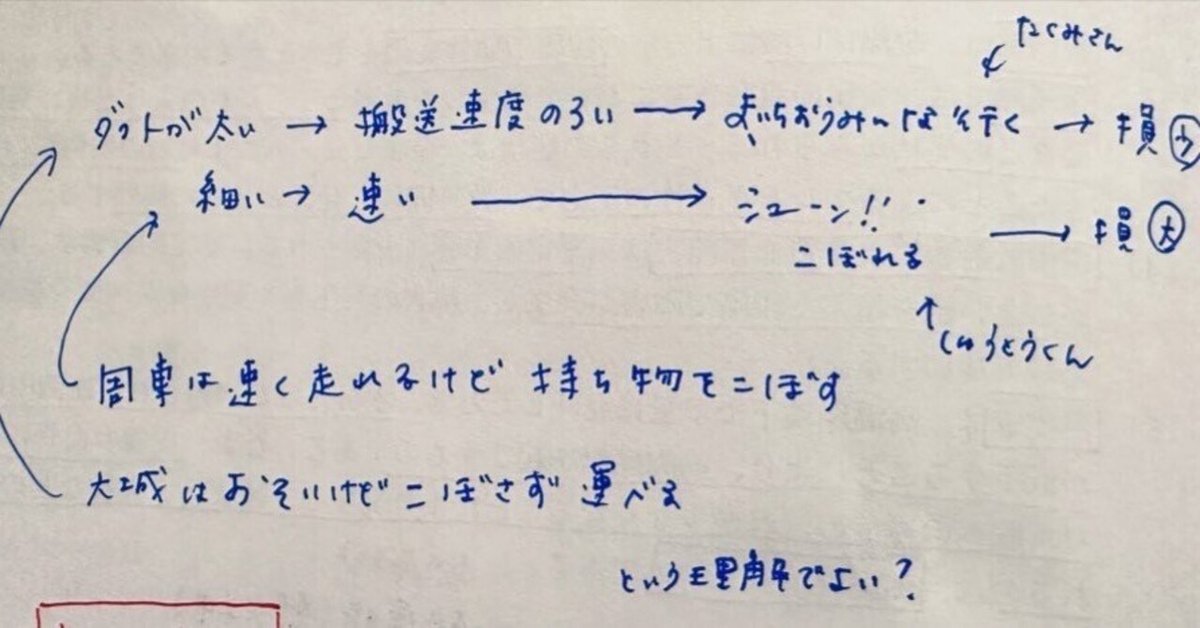 たくみさん
ダクトが太い → 搬送速度のろい → 行く → 損 小
細い → 速い → ミューン!!
こぼれる → 損 大
しゅうとうくん
周車は速く走れるけど 持ち物をこぼす
大城はおそいけど こぼさず 運べる
という理解でよい?